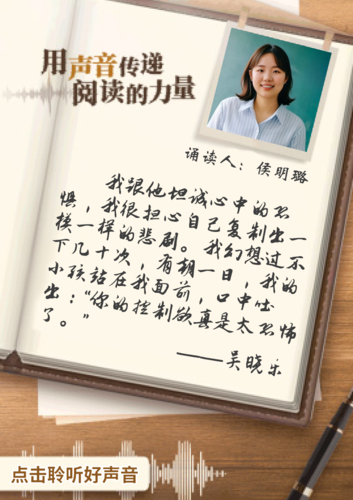 用声音传递
阅读的力量
诵读人：侯明璐
我跟他坦诚心中的恐
惧，我很担心自己复制出一
模一样的悲剧。我幻想过不
下几十次，有朝一日，我的
小孩站在我面前，口中吐
出：“你的控制欲真是太恐怖
了。”
——吴晓乐
点击聆听好声音